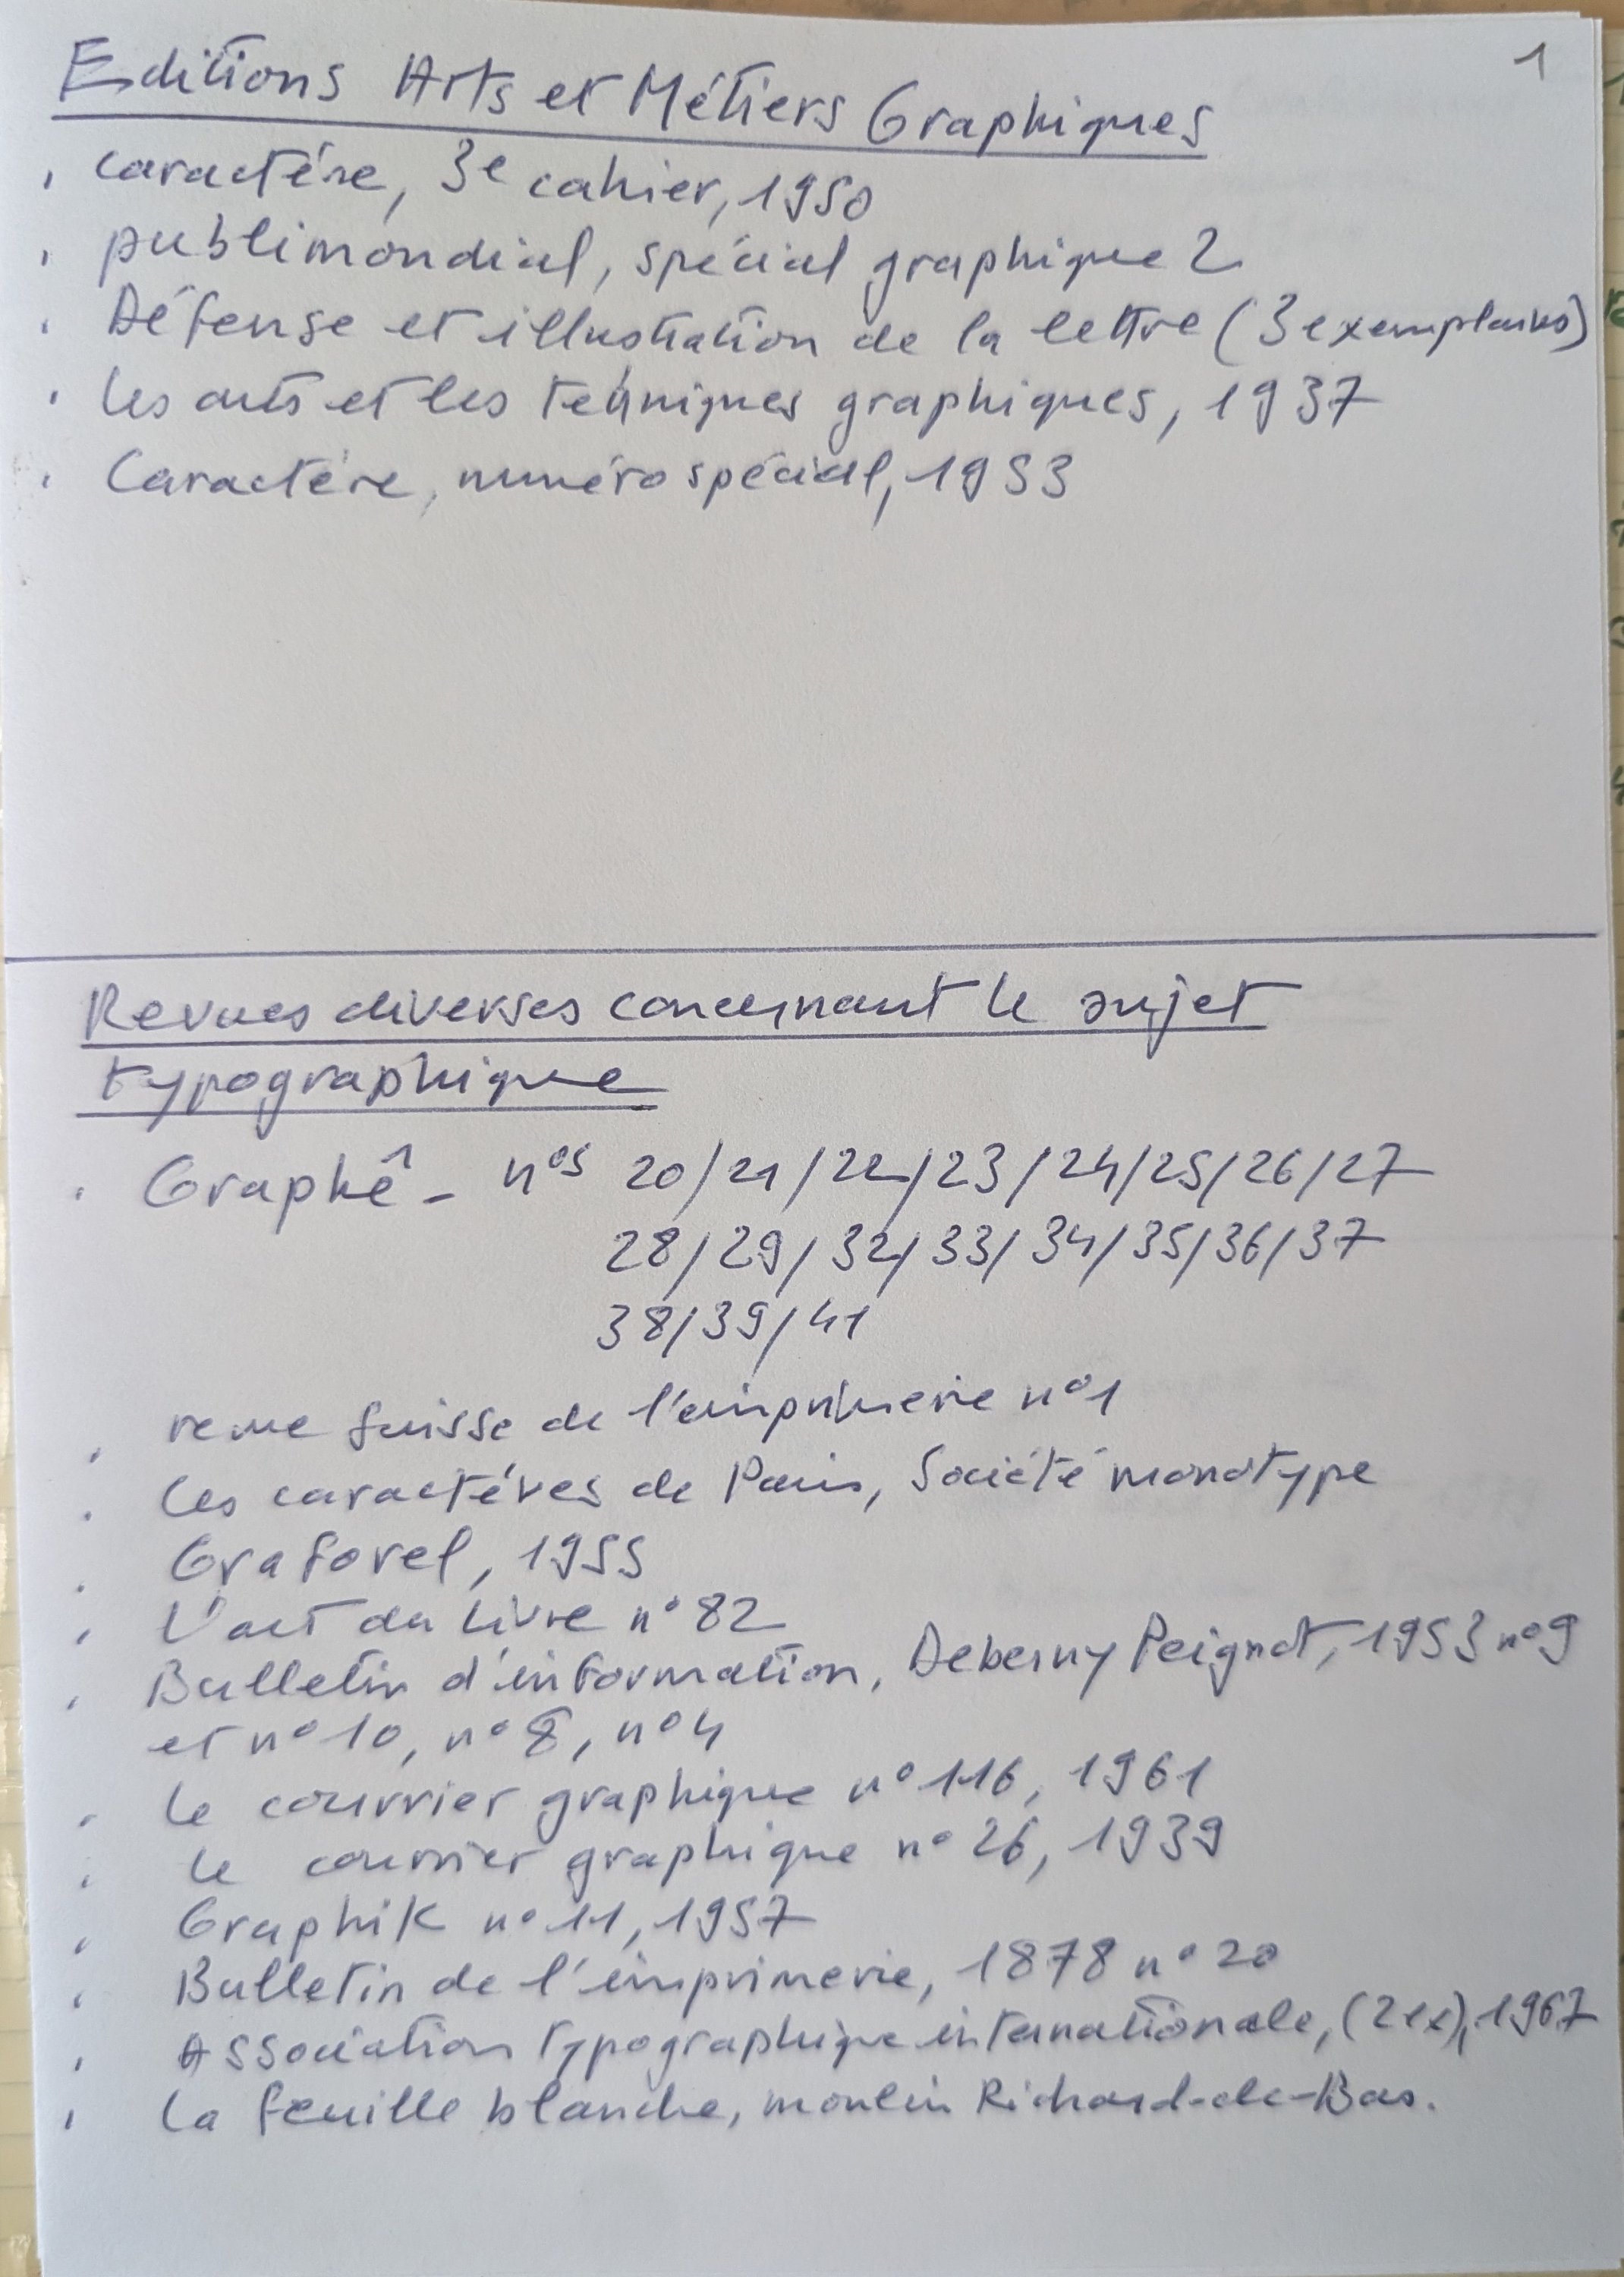 1
Editions Arts et Métiers Graphiques
caractére, 3e cahier, 1950
publimondial, spécial graphique 2
Défense et illustration de la lettre (3 exemplaires)
les arts et les tehniques graphiques, 1937
Caractére, numéro spécial, 1953
Revues diverses concernant le sujet
typographique
Graphê - nos 20/21/22/23/24/25/26/27
28/29/32/33/34/35/36/37
38/39/41
revue suisse de l'imprimerie n°1
les caractéres de Paris, Société monotype
Graforel, 1955
L'art du livre n°82
Bulletin d'information, Deberny Peignot, 1953 n°9
et n°10, n°8, n°4
le courrier graphique n°116, 1961
le courrier graphique n°26, 1939
Graphik n°11, 1957
Bulletin de l'imprimerie, 1878 n°20
Association typographique internationale, (2 ex), 1967
la feuille blanche, moulin Richard-de-Bas.